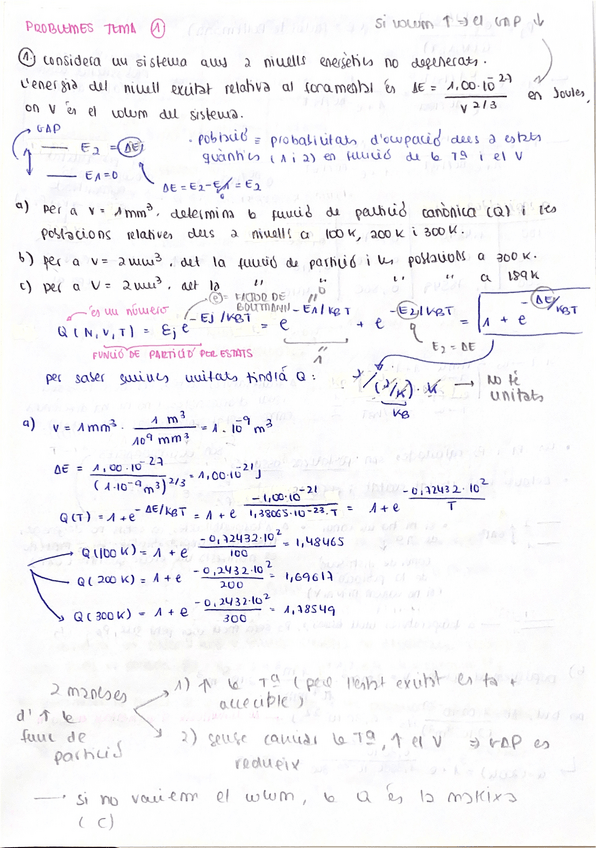 PROBLEMES TEMA 1
si volum ↑ ⇒ el GAP ↓
1. considera un sistema amb 2 nivells energètics no degenerats.
L'energia del nivell excitat relativa al fonamental és ΔE = 1,00·10^-27 / V^2/3 en Joules,
on V és el volum del sistema.
GAP
E2 = ΔE
E1 = 0
ΔE = E2 - E1 = E2
0
• població = probabilitats d'ocupació dels 2 estats
quàntics (1 i 2) en funció de la Tª i el V
a) per a V = 1mm³. determina la funció de partició canònica (Q) i les
poblacions relatives dels 2 nivells a 100K, 200K i 300K.
b) per a V = 2mm³. det la funció de partició i les poblacions a 300K.
c) per a V = 2mm³. det la " " " " a 189K
és un número
e = FACTOR DE BOLTZMANN
0
Q(N,V,T) = Σj e^-Ej/KBT = e^-E1/KBT + e^-E2/KBT = 1 + e^-ΔE/KBT
1
E2 = ΔE
FUNCIÓ DE PARTICIÓ PER ESTATS
per saber quines unitats tindrà Q: J/(J/K)·K → NO té unitats
KB
a) V = 1mm³ · 1 m³ / 10^9 mm³ = 1·10^-9 m³
ΔE = 1,00·10^-27 / (1·10^-9 m³)^2/3 = 1,00·10^-21 J
Q(T) = 1+e^-ΔE/KBT = 1 + e^-1,00·10^-21 / 1,38065·10^-23·T = 1+e^-0,72432·10² / T
Q(100K) = 1 + e^-0,72432·10² / 100 = 1,48465
Q(200K) = 1 + e^-0,2432·10² / 200 = 1,69617
Q(300K) = 1 + e^-0,2432·10² / 300 = 1,78549
2 maneres
d'↑ la
func de
partició
1) ↑ la Tª (perè l'estat excitat es fa +
accecible)
2) sense canviar la Tª, ↑ el V ⇒ GAP es
redueix
→ si no variem el volum, la Q és la mateixa
(c)